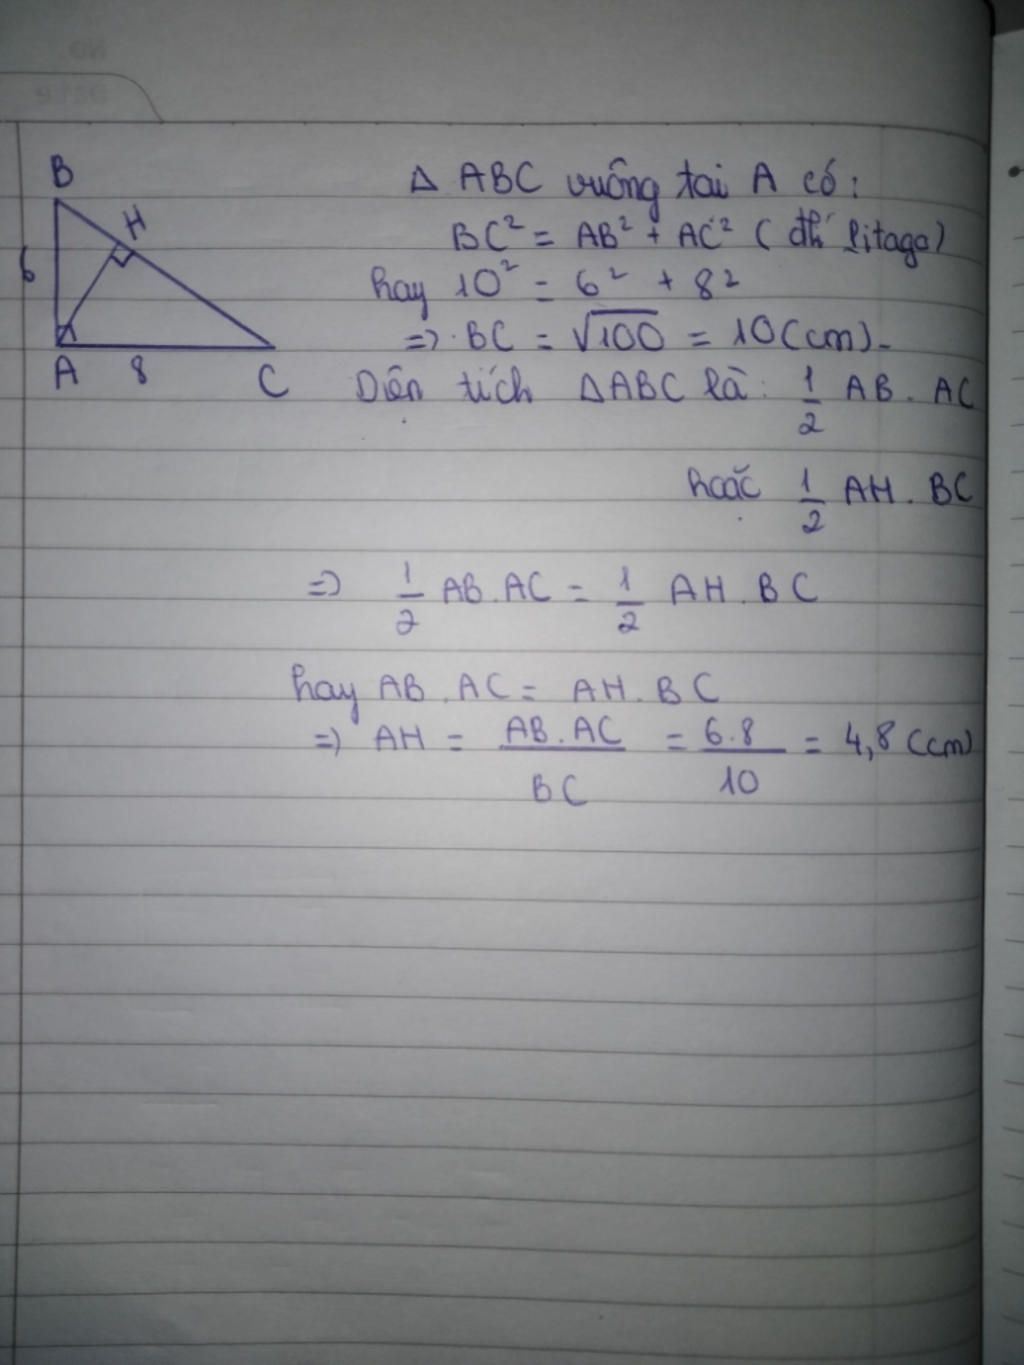 B
H
6
A 8 C
Δ ABC vuông tai A có:
BC² = AB² + AC² (đlí Pitago)
hay 10² = 6² + 8²
=> BC = √100 = 10 (cm).
Diện tích ΔABC là: 1/2 AB. AC
hoặc 1/2 AH. BC
=> 1/2 AB. AC = 1/2 AH. BC
hay AB. AC = AH. BC
=> AH = AB. AC / BC = 6.8 / 10 = 4,8 (cm)